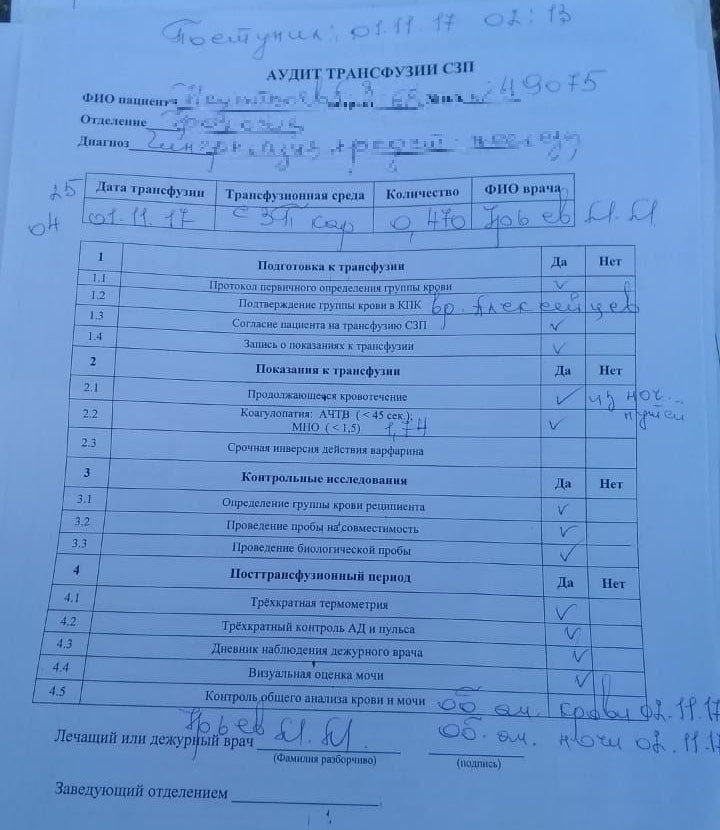 Поступил: 01.11.17 02:13
АУДИТ ТРАНСФУЗИИ СЗП
ФИО пациента 49075
Отделение
Диагноз
25
04
Дата трансфузии Трансфузионная среда Количество ФИО врача
01.11.17 СЗП кар 0,470 Юрьев
1 Подготовка к трансфузии Да Нет
1.1 Протокол первичного определения группы крови ✓
1.2 Подтверждение группы крови в КПК вр. Алексейцев
1.3 Согласие пациента на трансфузию СЗП ✓
1.4 Запись о показаниях к трансфузии ✓
2 Показания к трансфузии Да Нет
2.1 Продолжающееся кровотечение ✓ из моч. путей
2.2 Коагулопатия: АЧТВ (< 45 сек.);
МНО (< 1,5) 1,74 ✓
2.3 Срочная инверсия действия варфарина
3 Контрольные исследования Да Нет
3.1 Определение группы крови реципиента ✓
3.2 Проведение пробы на совместимость ✓
3.3 Проведение биологической пробы ✓
4 Посттрансфузионный период Да Нет
4.1 Трёхкратная термометрия ✓
4.2 Трёхкратный контроль АД и пульса ✓
4.3 Дневник наблюдения дежурного врача ✓
4.4 Визуальная оценка мочи ✓
4.5 Контроль общего анализа крови и мочи об ан. крови 02.11.17
Лечащий или дежурный врач Юрьев об. ан. мочи 02.11.17
(Фамилия разборчиво) (подпись)
Заведующий отделением